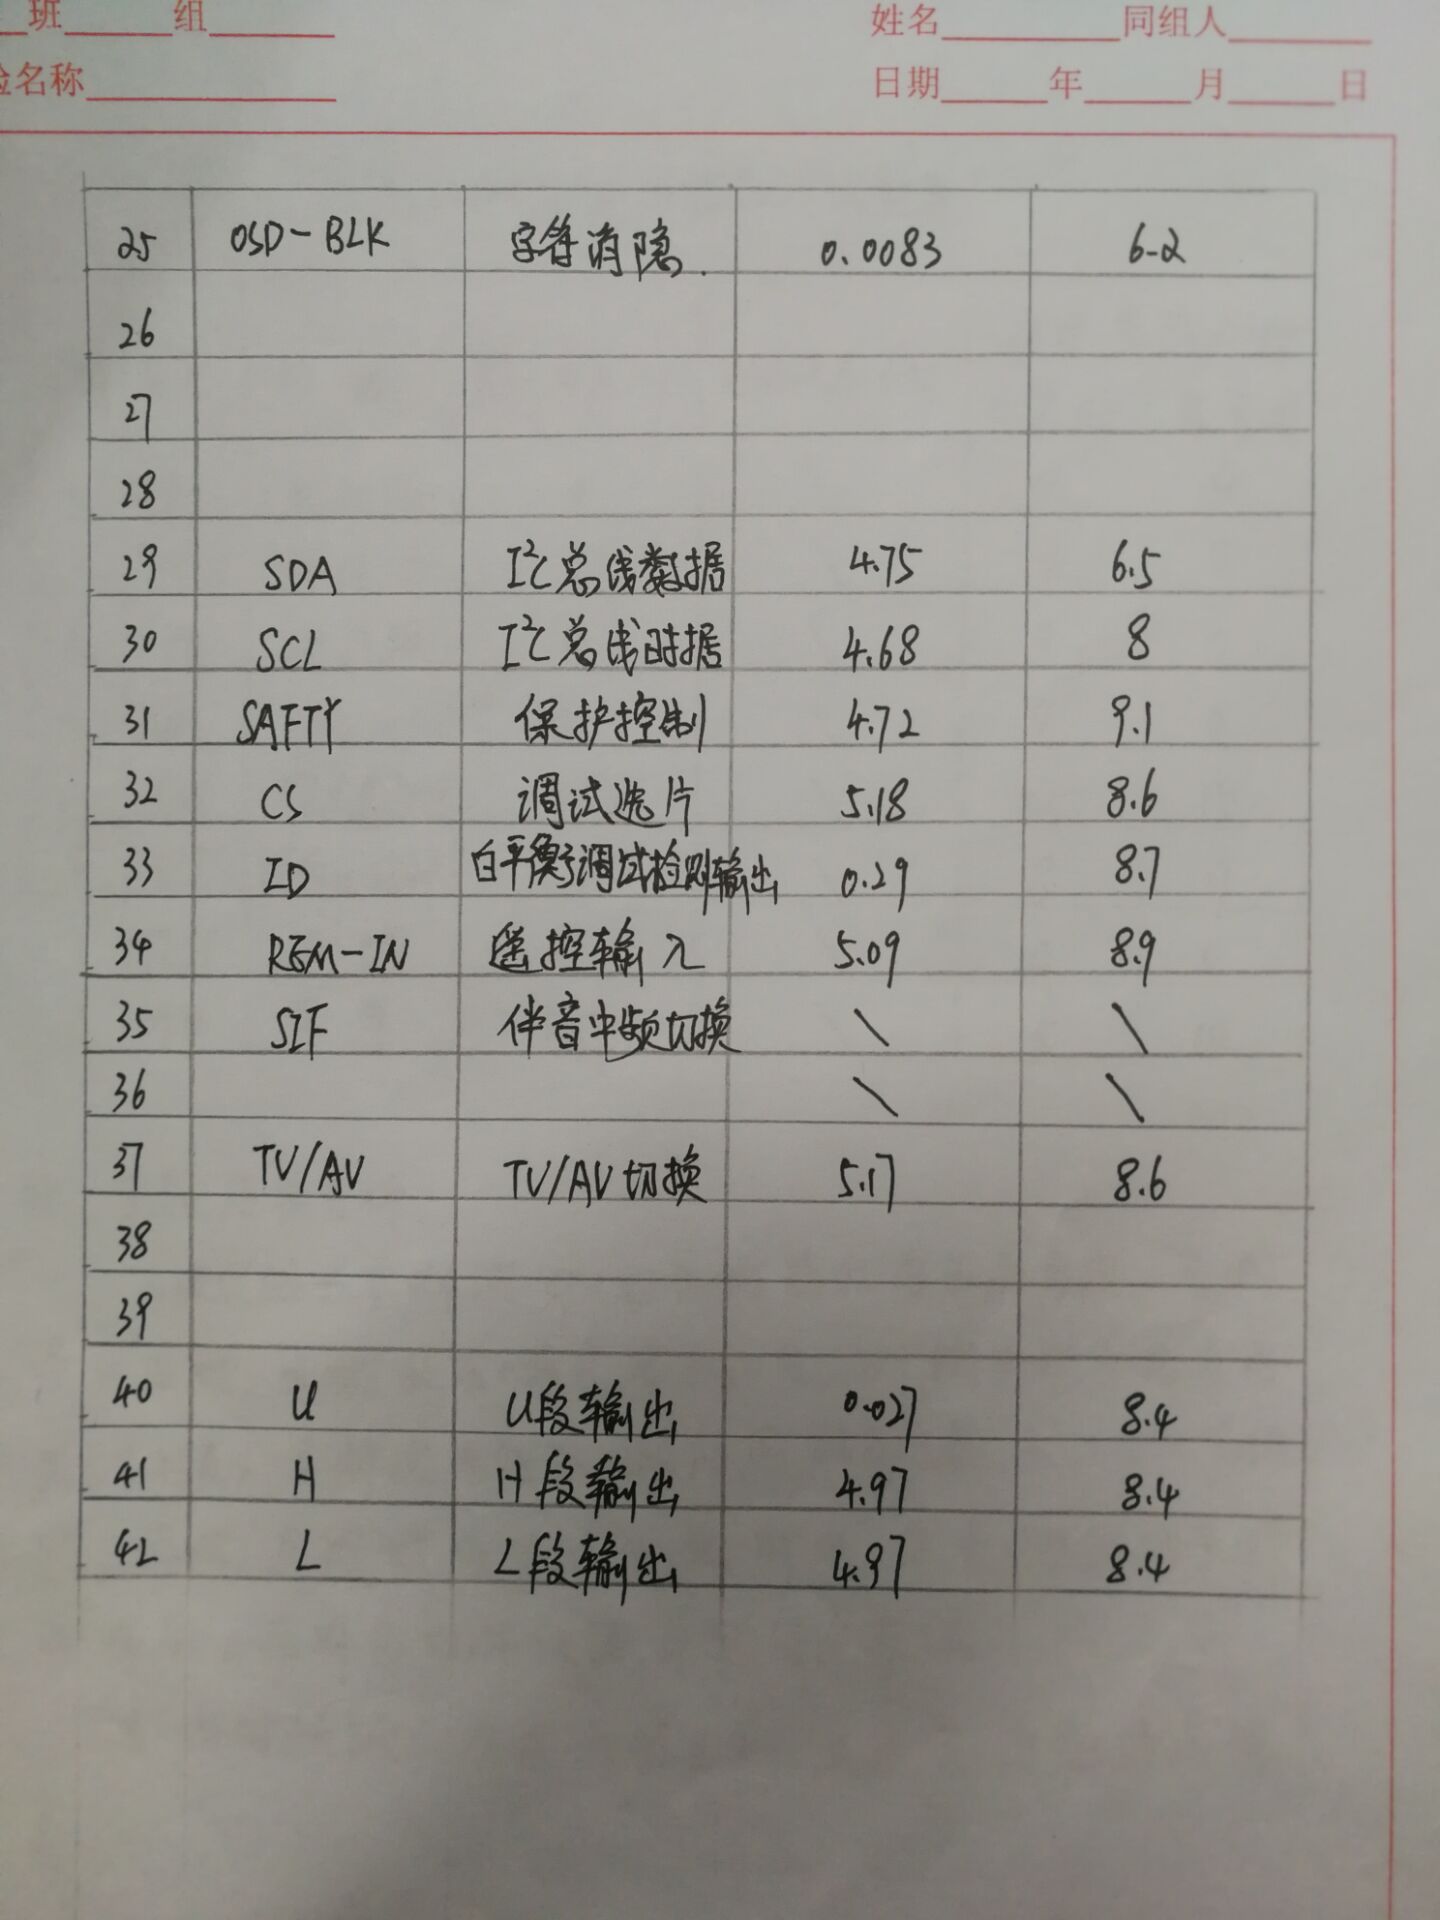 班______组______ 姓名______同组人______
验名称______ 日期______年______月______日
25 OSD-BLK 字符消隐. 0.0083 6-2
26
27
28
29 SDA I²C总线数据 4.75 6.5
30 SCL I²C总线时据 4.68 8
31 SAFTY 保护控制 4.72 9.1
32 CS 调试选片 5.18 8.6
33 ID 白平衡调试检测输出 0.29 8.7
34 REM-IN 遥控输入 5.09 8.9
35 SIF 伴音中频切换 \ \
36 \ \
37 TV/AV TV/AV切换 5.17 8.6
38
39
40 U U段输出 0.027 8.4
41 H H段输出 4.97 8.4
42 L L段输出 4.97 8.4